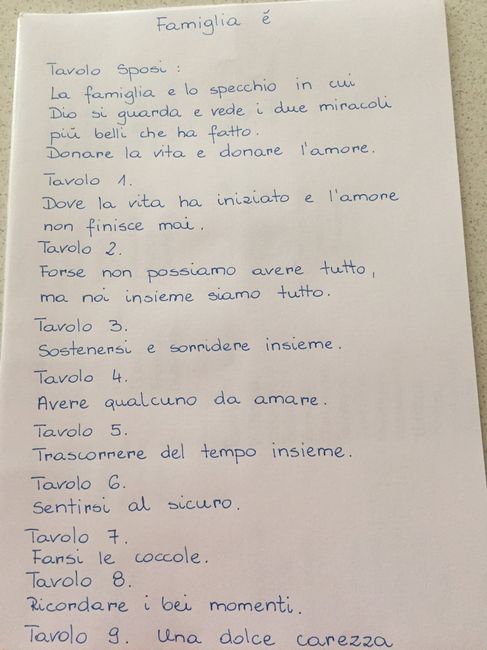 Famiglia é
Tavolo sposi :
La famiglia e lo specchio in cui
Dio si guarda e vede i due miracoli
piú belli che ha fatto.
Donare la vita e donare l'amore.
Tavolo 1.
Dove la vita ha iniziato e l'amore
non finisce mai.
Tavolo 2.
Forse non possiamo avere tutto,
ma noi insieme siamo tutto.
Tavolo 3.
Sostenersi e sorridere insieme.
Tavolo 4.
Avere qualcuno da amare.
Tavolo 5.
Trascorrere del tempo insieme.
Tavolo 6.
Sentirsi al sicuro.
Tavolo 7.
Farsi le coccole.
Tavolo 8.
Ricordare i bei momenti.
Tavolo 9. Una dolce carezza